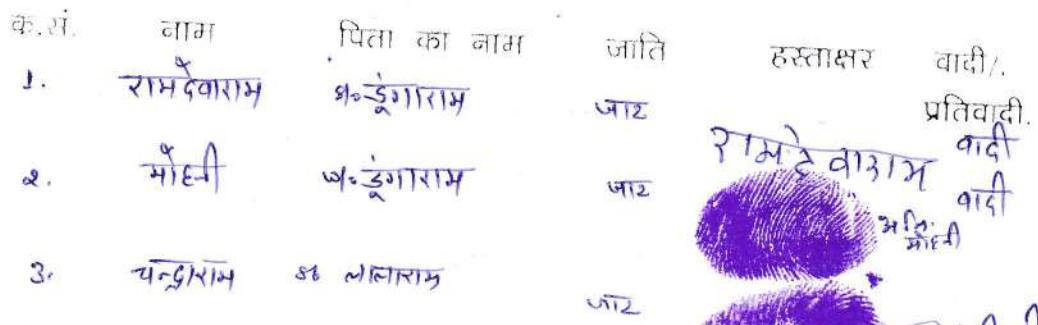 क.सं. नाम पिता का नाम जाति हस्ताक्षर वादी/.
प्रतिवादी.
1. रामदेवाराम S/o डूंगाराम जाट रामदेवाराम वादी
2. मोहनी w/o डूंगाराम जाट वादी
अ.नि. मोहनी
3. चन्द्राराम S/o लालाराम जाट